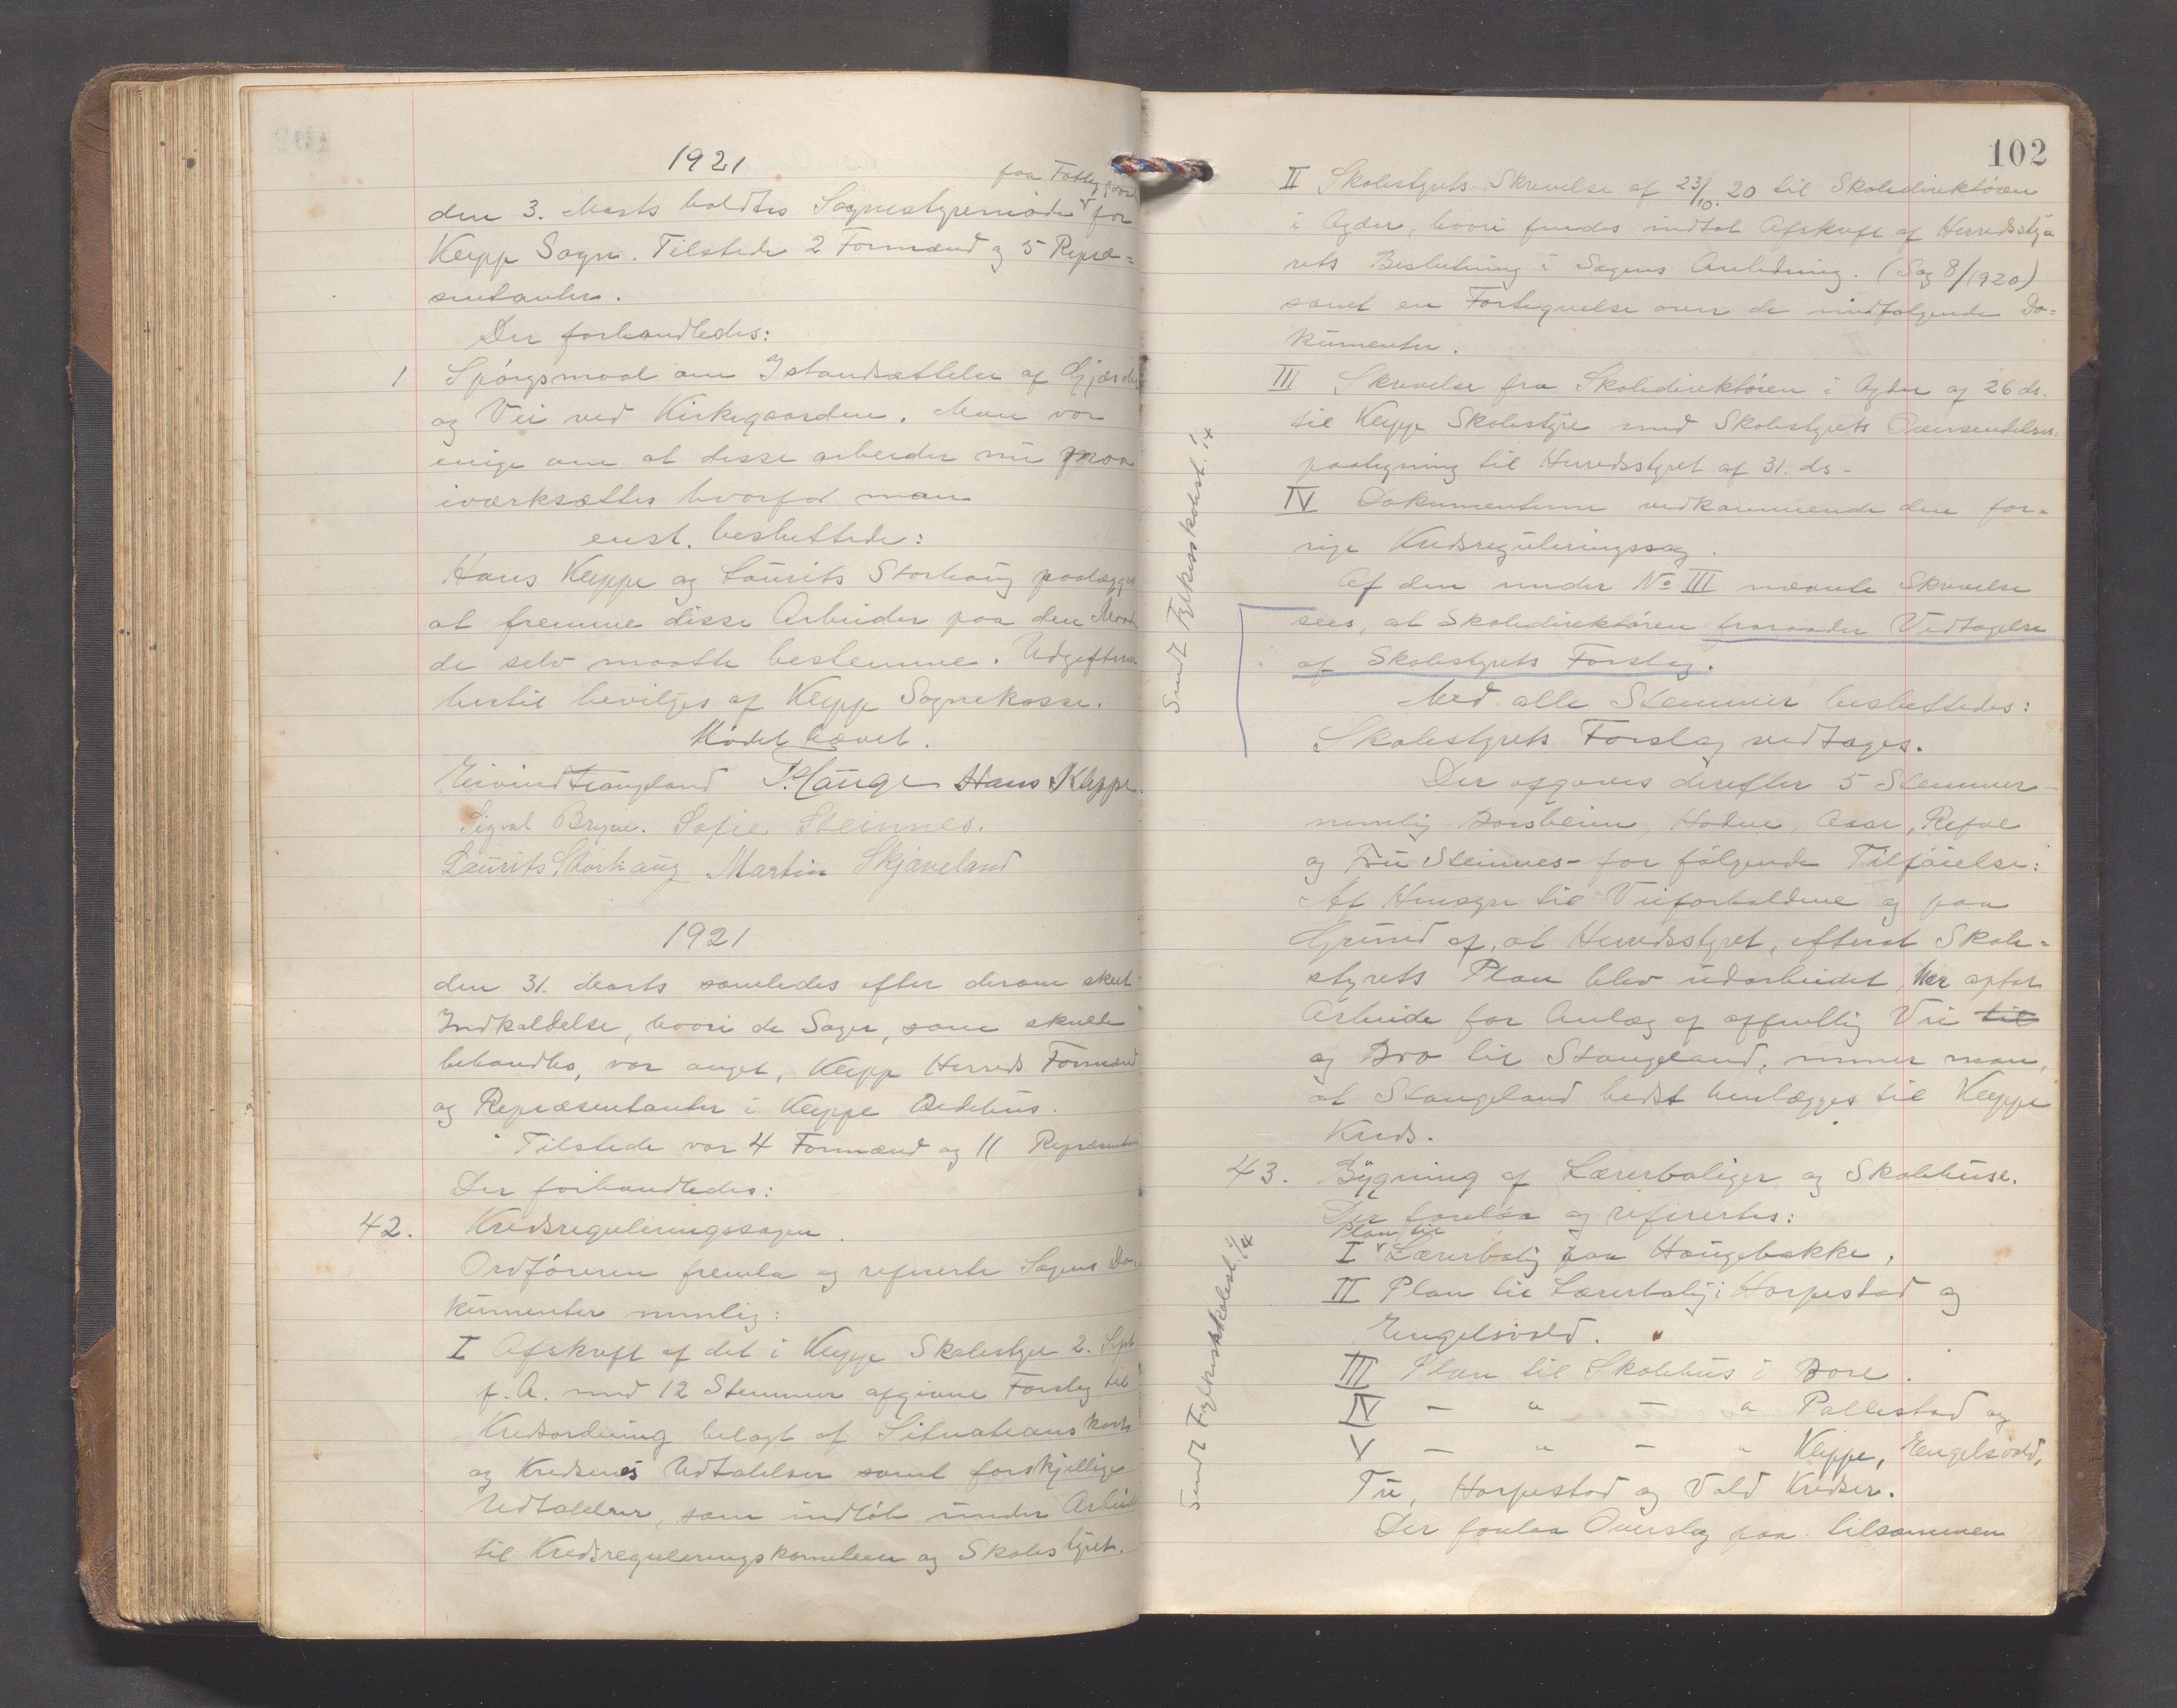 1921
den 3. Marts holdtes Sognestyremöde for
Klepp Sogn. Tilstede 2 Formænd og 5 Repræ=
sentanter.
Der forhandledes:
1 Spörgsmaal om Istandsættelse af Gjærde
og Vei ved Kirkegaarden. Man var
enige om at disse arbeider nu maa
iværksættes hvorfor man
enst. besluttede:
Hans Kleppe og Laurits Storhaug paalægges
at fremme disse Arbeider paa den Maade
de selv maatte bestemme. Udgifterne
hertil bevilges af Klepp Sognekasse.
Mødet hævet.
Eivind Hans Kleppe.
Sigval Bryne. Sofie Steinnes.
Laurits Storhaug Martin Skjæveland
1921
den 31. Marts samledes efter derom skeet
Indkaldelse, hvori de Sager, som skulde
behandles, var anget, Klepp Herreds Formænd
og Repræsentanter i Kleppe Bedehus.
Tilstede var 4 Formænd og 11 Repræsent
Der forhandledes:
42. Kredsreguleringssagen.
Ordföreren fremla og refererte Sagens Do-
kumenter nemlig:
I Afskrift af det i Klepp Skolestyre 2. Sept.
f. A. med 12 Stemmer afgivne Forslag til
Kredsordning belagt af Situationskart
og Kredsenes Udtalelser samt forskjellige
Udtalelser, som indlöb under Arbeidet
til Kredsreguleringskomiteen og Skolestyret.
102
II Skolestyrets Skrivelse af 23/10. 20 til Skoledirektören
i Agder, hvori findes indtat Afskrift af Herredssty=
rets Beslutning i Sagens Anledning. (Sag 8/1920)
samt en Fortegnelse over de medfølgende Do=
kumenter.
III Skrivelse fra Skoledirektören i Agder af 26 ds.
til Klepp Skolestyre med Skolestyrets Oversendelses=
paategning til Herredsstyret af 31. ds-
IV Dokumenterne vedkommende den for-
rige Kredsreguleringssag.
Af den under No III nævnte Skrivelse
sees, at Skoledirektören traader Vedtagelse
af Skolestyrets Forslag.
Med alle Stemmer besluttedes:
Skolestyrets Forslag vedtages.
Der afgaves derefter 5 Stemmer
nemlig Borsheim, Hodne, Aase, Refve
og Fru Steinnes- for fölgende Tilföielse:
Af Hensyn til Veiforholdene og paa
Grund af, at Herredsstyret, efterat Skole=
styrets Plan blev udarbeidet, har optat
Arbeide for Anlæg af offentlig Vei til
og Bro til Stangeland, mener man,
at Stangeland bedst henlægges til Kleppe
Kreds.
43. Bygning af Lærerboliger og Skolehuse.
Der forelaa og refirertes:
Plan til
I Lærerbolig paa Haugebakke,
II Plan til Lærerbolig i Horpestad og
Engelsvold.
III Plan til Skolehus i Bore.
IV - " - " Pallestad og
V - " - " Kleppe, Engelsvold,
Tu, Horpestad og Vold Kredser.
Der forelaa Overslag paa tilsammen
Sendt Fylkesskolest. 1/4
Sendt Fylkesskolest. 1/4